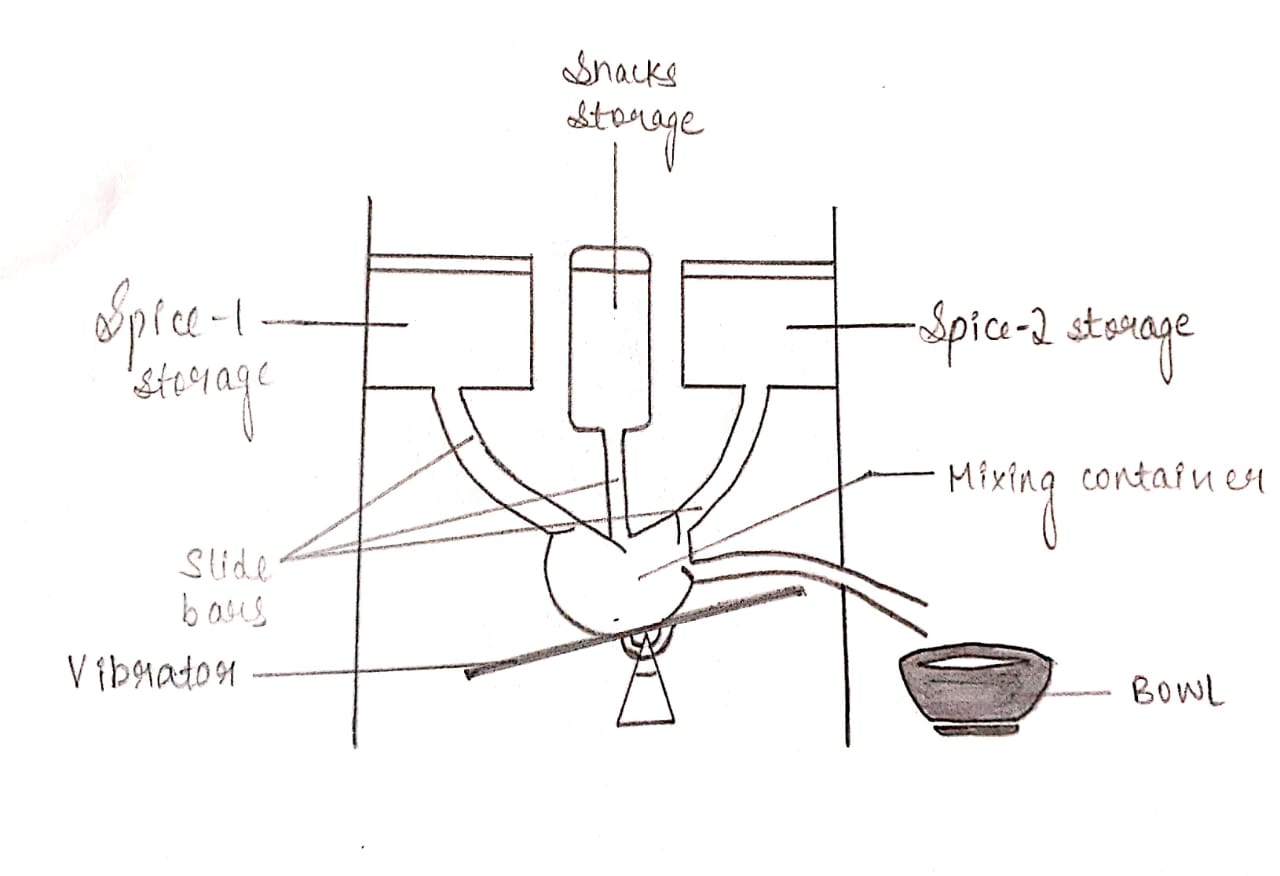 Snacks
Storage
Spice-1
storage
Spice-2 storage
Mixing container
Slide
bars
Vibrator
BOWL